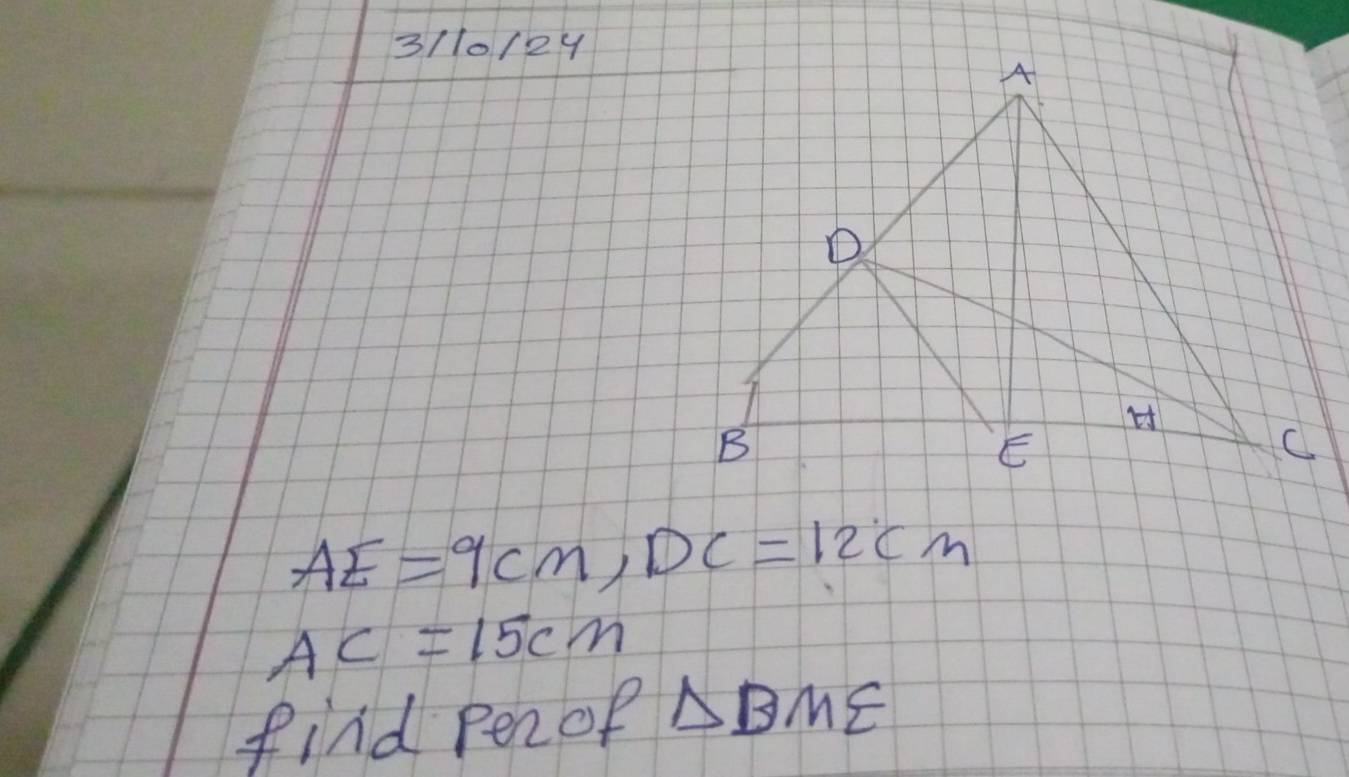 3/10/24
A
D
B E H C
AE=9cm, DC=12cm
AC=15cm
find per of ΔDME